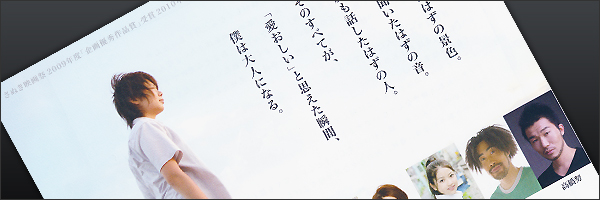 はずの景色。
聞いたはずの音。
も話したはずの人。
そのすべてが、
「愛おしい」と思えた瞬間、
僕は大人になる。
さぬき映画祭2009年度「企画優秀作品賞」受賞2010
高橋努